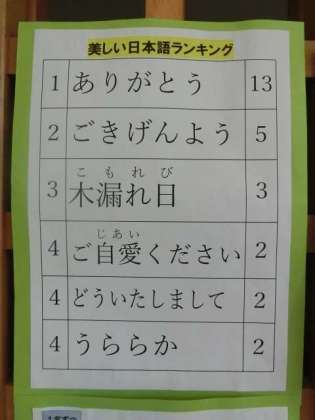 美しい日本語ランキング
1 ありがとう 13
2 ごきげんよう 5
こもれび
3 木漏れ日 3
じあい
4 ご自愛ください 2
4 どういたしまして 2
4 うららか 2